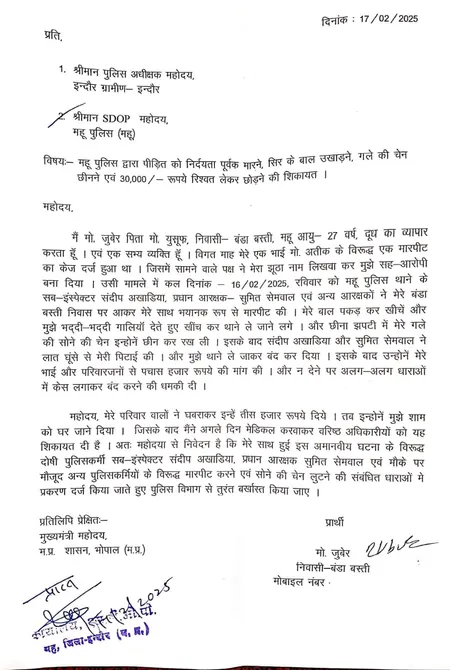 दिनांक : 17/02/2025
प्रति,
1. श्रीमान पुलिस अधीक्षक महोदय,
इन्दौर ग्रामीण– इन्दौर
2. श्रीमान SDOP महोदय,
महू पुलिस (महू)
विषयः– महू पुलिस द्वारा पीड़ित को निर्दयता पूर्वक मारने, सिर के बाल उखाड़ने, गले की चेन
छीनने एवं 30,000/– रूपये रिश्वत लेकर छोड़ने की शिकायत ।
महोदय,
मैं मो. जुबेर पिता मो. युसूफ, निवासी– बंडा बस्ती, महू आयु– 27 वर्ष, दूध का व्यापार
करता हूँ । एवं एक सभ्य व्यक्ति हूँ । विगत माह मेरे एक भाई मो. अतीक के विरूद्ध एक मारपीट
का केज दर्ज हुआ था । जिसमें सामने वाले पक्ष ने मेरा झूठा नाम लिखवा कर मुझे सह–आरोपी
बना दिया । उसी मामले में कल दिनांक – 16/02/2025, रविवार को महू पुलिस थाने के
सब–इंस्पेक्टर संदीप अखाडिया, प्रधान आरक्षक– सुमित सेमवाल एवं अन्य आरक्षकों ने मेरे बंडा
बस्ती निवास पर आकर मेरे साथ भयानक रूप से मारपीट की । मेरे बाल पकड़ कर खीचें और
मुझे भद्दी–भद्दी गालियाँ देते हुए खींच कर थाने ले जाने लगे । और छीना झपटी में मेरे गले
की सोने की चेन इन्होनें छीन कर रख ली । इसके बाद संदीप अखाडिया और सुमित सेमवाल ने
लात घूंसे से मेरी पिटाई की । और मुझे थाने ले जाकर बंद कर दिया । इसके बाद उन्होनें मेरे
भाई और परिवारजनों से पचास हजार रूपये की मांग की । और न देने पर अलग–अलग धाराओं
में केस लगाकर बंद करने की धमकी दी ।
महोदय, मेरे परिवार वालों ने घबराकर इन्हें तीस हजार रूपये दिये । तब इन्होनें मुझे शाम
को घर जाने दिया । जिसके बाद मैंने अगले दिन मेडिकल करवाकर वरिष्ठ अधिकारीयों को यह
शिकायत दी है । अतः महोदया से निवेदन है कि मेरे साथ हुई इस अमानवीय घटना के विरूद्ध
दोषी पुलिसकर्मी सब–इंस्पेक्टर संदीप अखाडिया, प्रधान आरक्षक सुमित सेमवाल एवं मौके पर
मौजूद अन्य पुलिसकर्मियों के विरूद्ध मारपीट करने एवं सोने की चेन लुटने की संबंधित धाराओं मे
प्रकरण दर्ज किया जाते हुए पुलिस विभाग से तुरंत बर्खास्त किया जाए ।
प्रतिलिपि प्रेक्षितः–
मुख्यमंत्री महोदय,
म.प्र. शासन, भोपाल (म.प्र.)
प्रार्थी
मो. जुबेर
निवासी–बंडा बस्ती
मोबाइल नंबर
प्राप्त
महू, जिला-इन्दौर (म. प्र.)